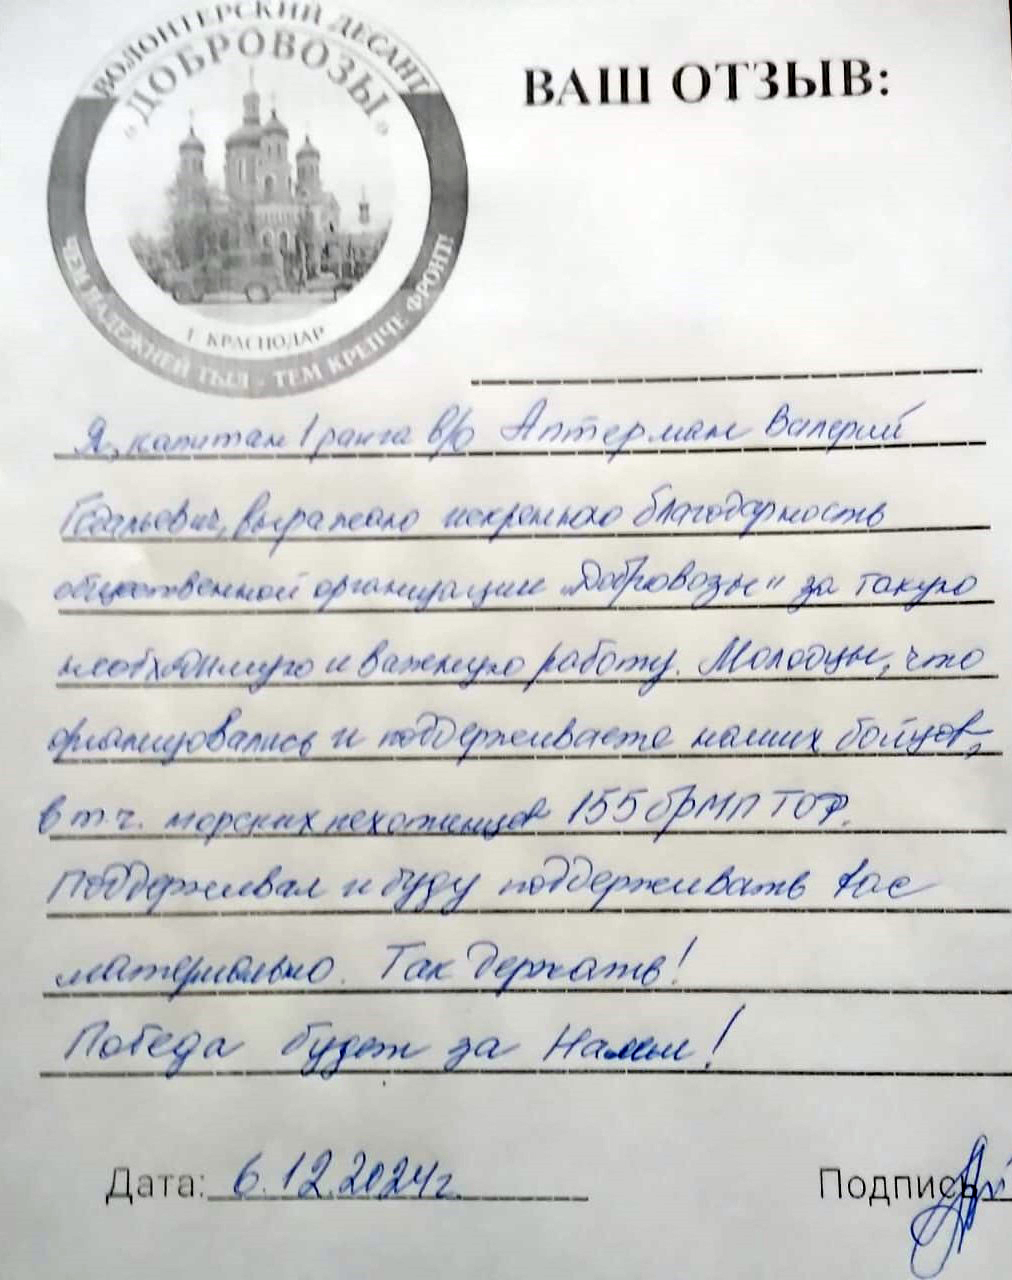 ВОЛОНТЕРСКИЙ ДЕСАНТ
«ДОБРОВОЗЫ»
Г. КРАСНОДАР
ЧЕМ НАДЕЖНЕЙ ТЫЛ - ТЕМ КРЕПЧЕ ФРОНТ!
ВАШ ОТЗЫВ:
Я, капитан 1 ранга в/о Аптерман Валерий
выражаю искреннюю благодарность
общественной организации „Добровозы" за такую
необходимую и важную работу. Молодцы, что
организовались и поддерживаете наших бойцов,
в т.ч. морских пехотинцев 155 брМП ТОФ.
Поддерживал и буду поддерживать вас
материально. Так держать!
Победа будет за Нами!
Дата: 6.12.2024г.
Подпись